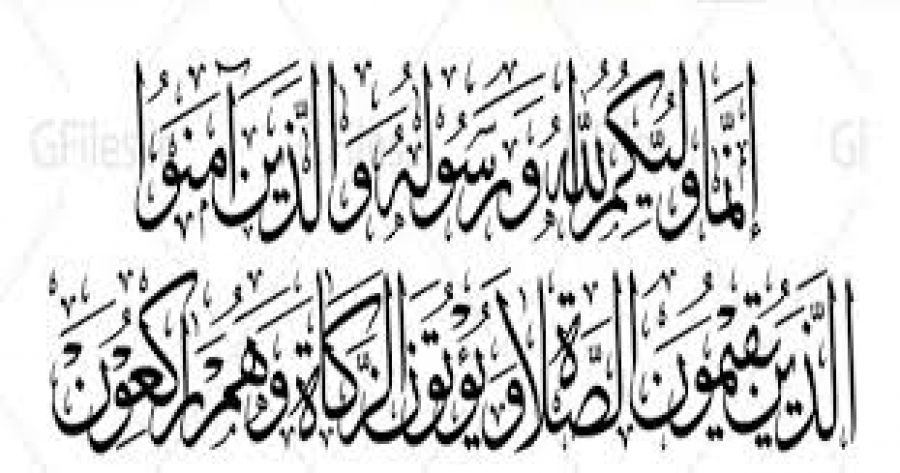 إِنَّمَا وَلِيُّكُمُ اللَّهُ وَرَسُولُهُ وَالَّذِينَ آمَنُوا
الَّذِينَ يُقِيمُونَ الصَّلَاةَ وَيُؤْتُونَ الزَّكَاةَ وَهُمْ رَاكِعُونَ
GFiles
Gf